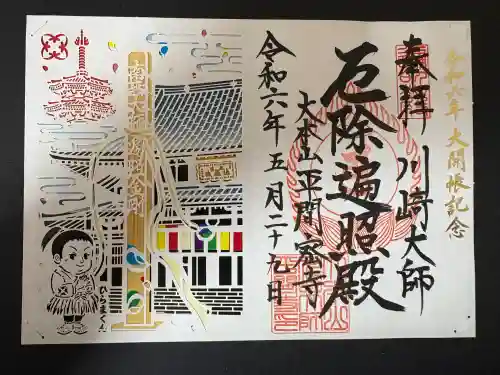 令和六年 大開帳記念
奉拝 川崎大師
厄除遍照殿
大本山平間寺
令和六年五月二十九日
ひらまくん